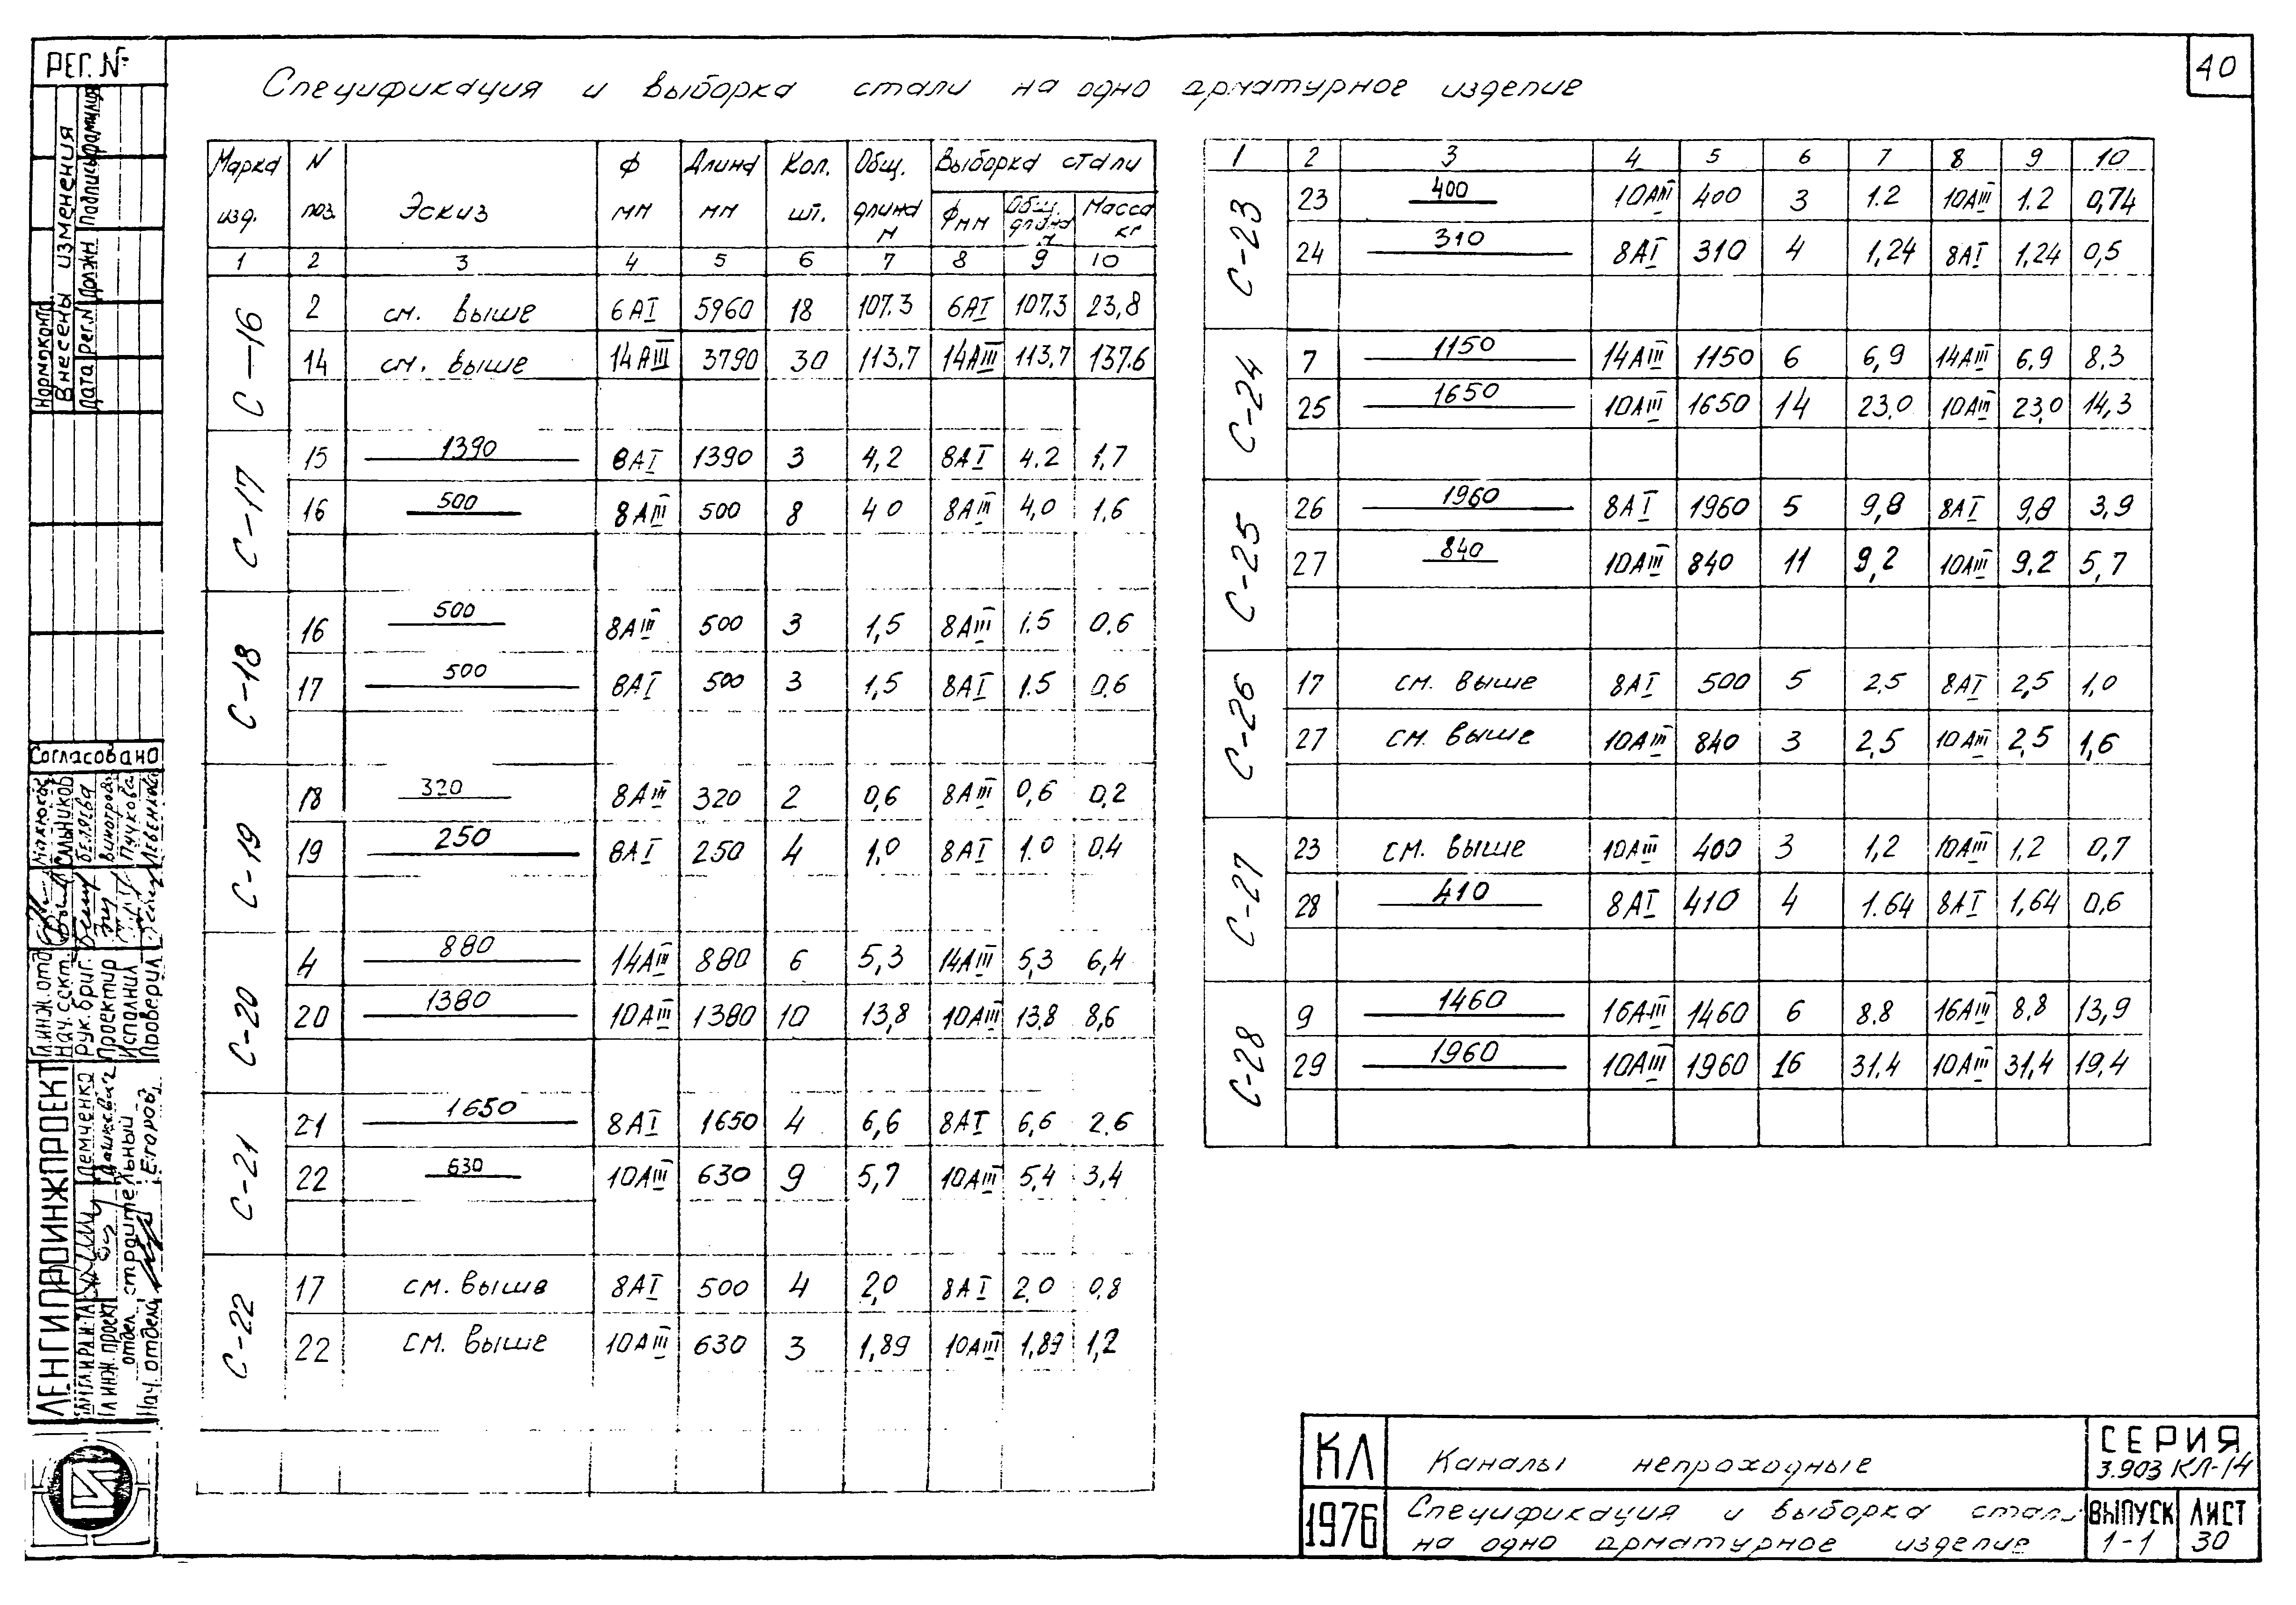 40
Спецификация и выборка стали на одно арматурное изделие
Марка изд. N поз. Эскиз Ф мм Длина мм Кол. шт. Общ. длина м Выборка стали
Ф мм Общ. длина м Масса кг
1 2 3 4 5 6 7 8 9 10
С-16
2 см. выше 6АI 5960 18 107.3 6АI 107,3 23,8
14 см. выше 14АIII 3790 30 113,7 14АIII 113,7 137.6
С-17
15 1390 8АI 1390 3 4,2 8АI 4.2 1,7
16 500 8АIII 500 8 40 8АIII 4,0 1,6
С-18
16 500 8АIII 500 3 1,5 8АIII 1.5 0.6
17 500 8АI 500 3 1,5 8АI 1.5 0.6
С-19
18 320 8АIII 320 2 0,6 8АIII 0,6 0,2
19 250 8АI 250 4 1,0 8АI 1.0 0.4
С-20
4 880 14АIII 880 6 5,3 14АIII 5,3 6,4
20 1380 10АIII 1380 10 13,8 10АIII 13.8 8,6
С-21
21 1650 8АI 1650 4 6,6 8АI 6,6 2.6
22 630 10АIII 630 9 5,7 10АIII 5,4 3,4
С-22
17 см. выше 8АI 500 4 2,0 8АI 2.0 0.8
22 см. выше 10АIII 630 3 1,89 10АIII 1,89 1,2
1 2 3 4 5 6 7 8 9 10
С-23
23 400 10АIII 400 3 1.2 10АIII 1.2 0,74
24 310 8АI 310 4 1,24 8АI 1,24 0,5
С-24
7 1150 14АIII 1150 6 6,9 14АIII 6,9 8.3
25 1650 10АIII 1650 14 23,0 10АIII 23,0 14,3
С-25
26 1960 8АI 1960 5 9,8 8АI 9,8 3,9
27 840 10АIII 840 11 9,2 10АIII 9,2 5,7
С-26
17 см. выше 8АI 500 5 2.5 8АI 2,5 1,0
27 см. выше 10АIII 840 3 2,5 10АIII 2,5 1,6
С-27
23 см. выше 10АIII 400 3 1,2 10АIII 1.2 0,7
28 410 8АI 410 4 1.64 8АI 1,64 0,6
С-28
9 1460 16АIII 1460 6 8.8 16АIII 8.8 13,9
29 1960 10АIII 1960 16 31.4 10АIII 31,4 19,4
КЛ Каналы непроходные СЕРИЯ
3.903 КЛ-14
1976 Спецификация и выборка стали
на одно арматурное изделие
ВЫПУСК ЛИСТ
1-1 30
РЕГ. №
Внесены изменения
Дата Рег.N Должн Подпись Фамилия
Согласовано
Сальников
Беляева
Пучкова
Гл.инж.отд.
Нач. сект.
Рук. бриг.
Проектир
Исполнил
Проверил
ЛЕНГИПРОИНЖПРОЕКТ
Демченко
Гл инж. проект
отдел строительный
Нач. отдела Егоров